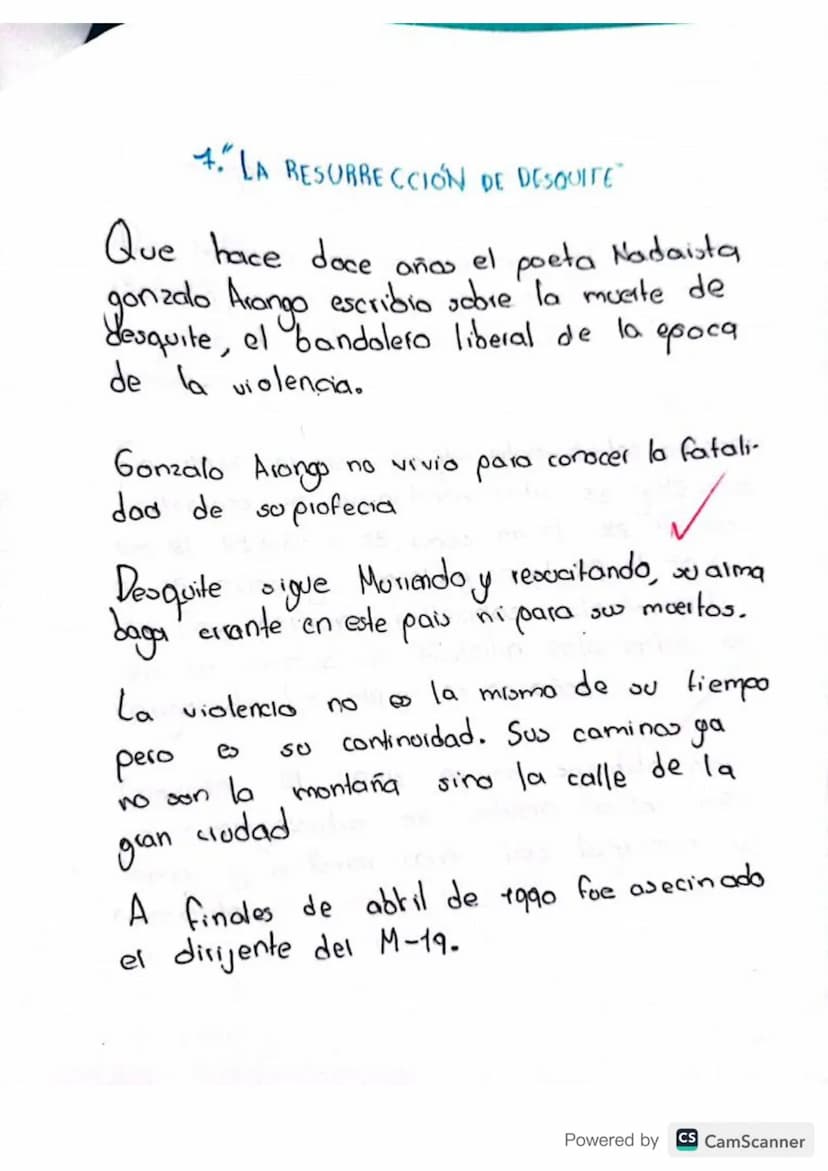 1. "LA RESURRECCIÓN DE DESQUITE"
Que hace doce años el poeta Nadaista
gonzalo Arango escribio sobre la muerte de
desquite, el bandolero liberal de la epoca
de la violencia.
Gonzalo Arango no vivio para conocer la fatali-
dad de su profecia
Desquite sigue Muriendo y resucitando, su alma
baga errante en este pais ni para sus muertos.
La violencia no es la misma de su tiempo
pero es su continuidad. Sus caminos ya
no son la montaña sino la calle de la
gran ciudad
A finales de abril de 1990 fue asecinado
el dirijente del M-19.
Powered by CS CamScanner